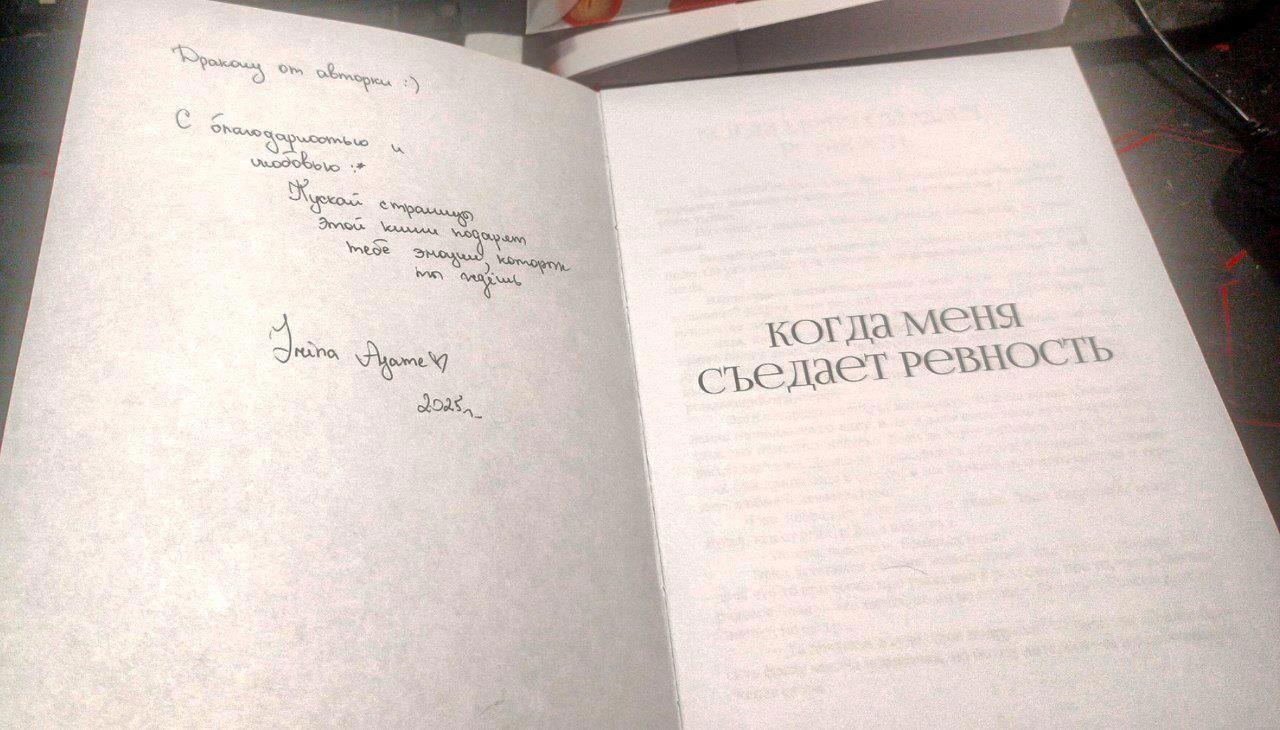 Дракону от авторки :)
С благодарностью и
любовью :*
Пускай страницы
этой книги подарят
тебе эмоции, которые
ты ждёшь
Irina Agame♡
2025г.
КОГДА МЕНЯ
СЪЕДАЕТ РЕВНОСТЬ